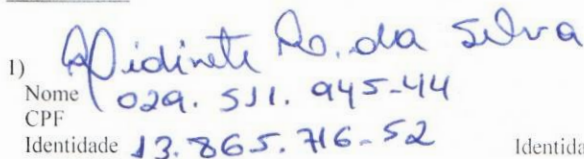 1) Ro. da Silva
Nome 029.511.945-44
CPF
Identidade 13.865.716-52 Identida